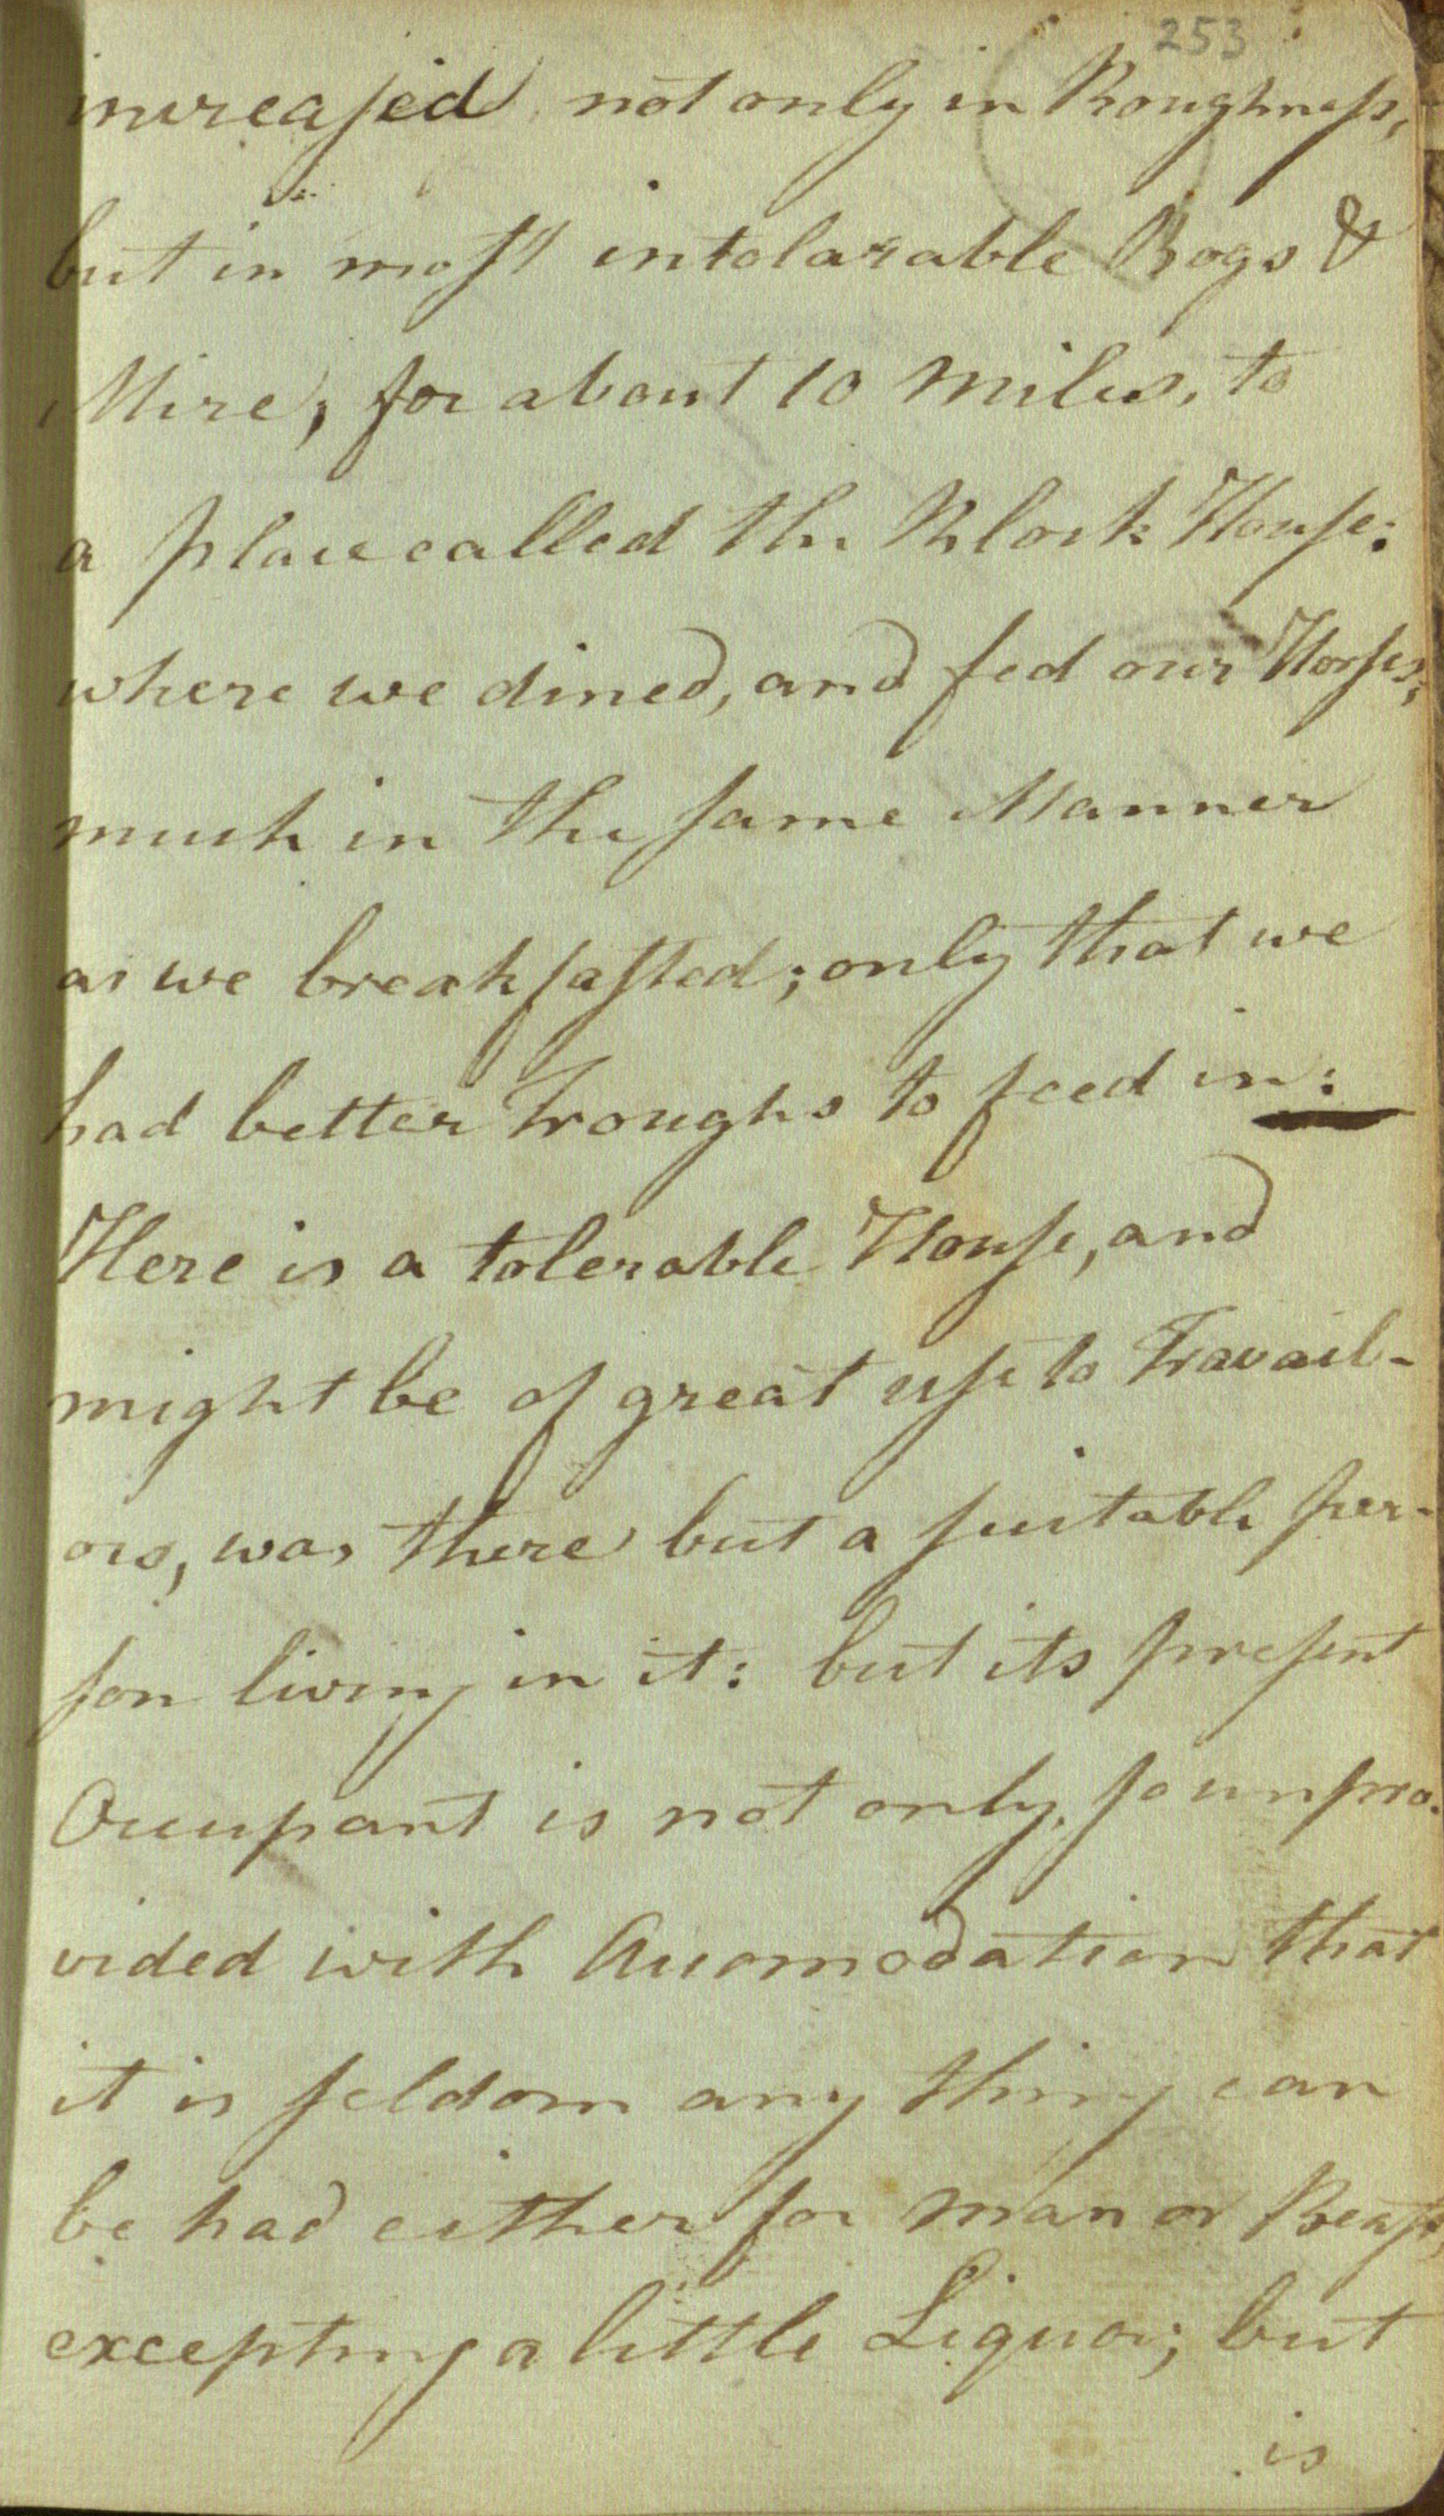 253
increased not only in Roughness,
but in most intolarable Bogs &
Mire, for about 10 miles, to
a place called the Block House:
where we dined, and fed our Horses,
much in the same Manner
as we breakfasted; only that we
had better Troughs to feed in:
Here is a tolerable House, and
might be of great use to Travail-
ors, was there but a suitable per-
son living in it: but its present
Occupant is not only, so unpro-
vided with Accomodation that
it is seldom any thing can
be had either for man or Beast,
excepting a little Liquor; but
is